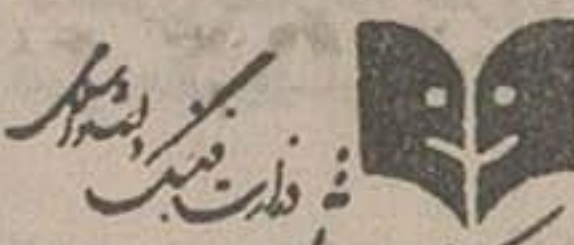 وزارت فرهنگ
و ارشاد اسلامی